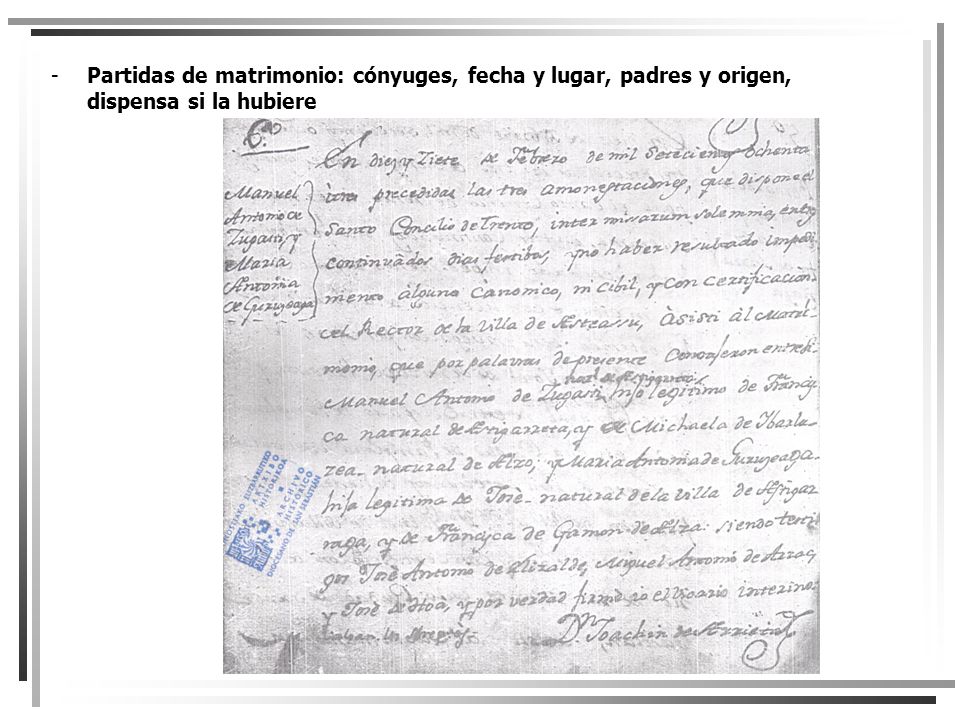 - Partidas de matrimonio: cónyuges, fecha y lugar, padres y origen,
dispensa si la hubiere
Manuel
Antonio de
Zugasti y
Maria
Antonia
de Guruzeaga
En diez y Ziete de Febrero de mil Setecien y ochenta
precedidas las tres amonestaciones, que dispone el
Santo Concilio de Trento, inter missarum solemnia, en tres
continuados dias festibos, y no haber resultado impedi-
mento alguno Canonico, ni Cibil, y con certificacion
del Rector de la Villa de Asteassu, Asisti al Matri-
monio, que por palavras de presente Contrajeron entre si
Manuel Antonio de Zugasti hijo legitimo de Francis
ca natural de y de Michaela de Ibarlu-
zea natural de Alzo; y Maria Antonia de Guruzeaga
hija legitima de Josè natural de la Villa de Astigar
raga, y de Francisca de Gamon de Alza: siendo testi
gos Josè Antonio de Elizalde, Miguel Antonio de
y Josè de y por verdad firmé yo el Vicario interino
Dn. Joachin de Arrieta
DIOCESANO DE SAN SEBASTIÁN
ARCHIVO
HISTÓRICO
ARTXIBO
HISTORIKOA